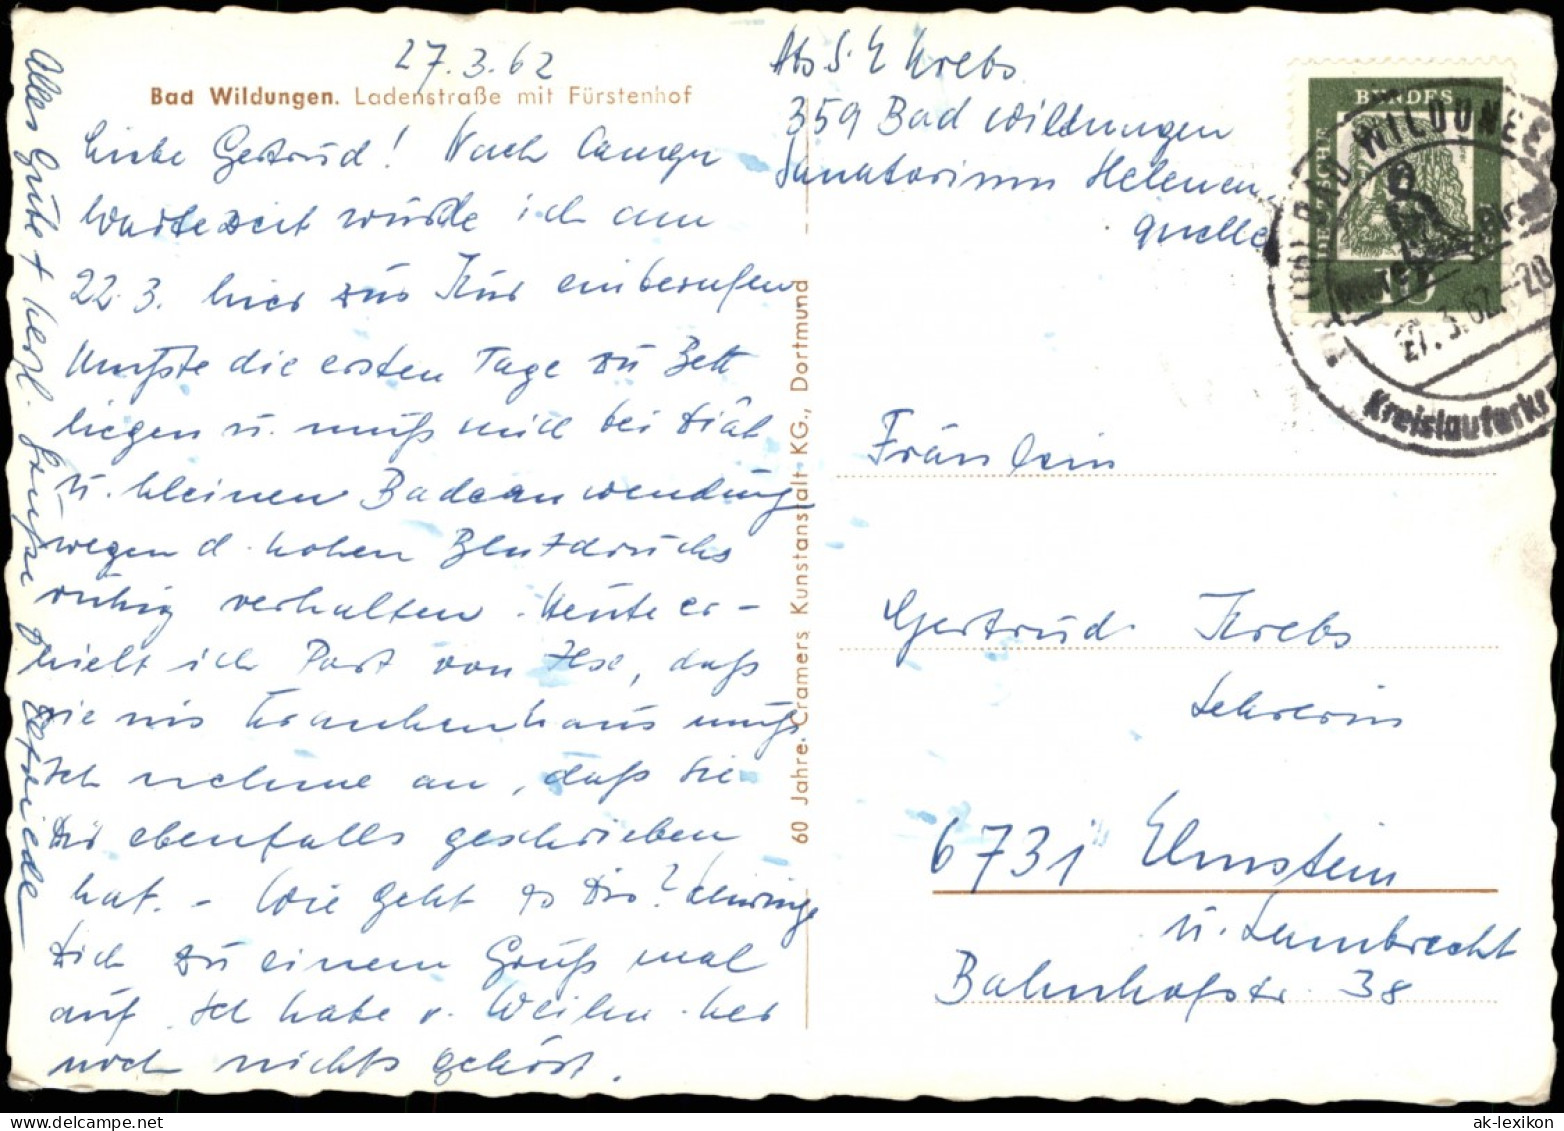 27.3.62
Bad Wildungen. Ladenstraße mit Fürstenhof
Liebe Gertrud! Nach langer
Wartezeit wurde ich am
22.3. hier zur Kur einberufen
Mußte die ersten Tage zu Bett
liegen u. muß mich bei Diät
u. kleinen Badeanwendung
wegen d. hohen Blutdrucks
ruhig verhalten. Heute er-
hielt ich Post von Ilse, daß
sie ins Krankenhaus muß
Ich nehme an, daß sie
Dir ebenfalls geschrieben
hat. - Wie geht es Dir? Schwinge
Dich zu einem Gruß mal
auf. Ich habe v. Weilm. her
noch nichts gehört.
Alles Gute + herzl. Grüße Elfriede
60 Jahre Cramers Kunstanstalt KG., Dortmund
Abs. E Krebs
359 Bad Wildungen
Sanatorium Helenen
quelle
DEUTSCHE BUNDES
10
BAD WILDUNGEN
27.3.62.-20
Kreislauferkr
Fräulein
Gertrud Krebs
Lehrerin
6731 Elmstein
ü. Lambrecht
Bahnhofstr. 38
ak-lexikon.com